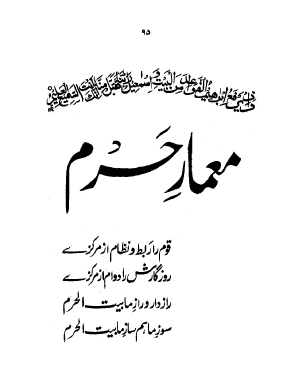 ۹۵
واذ یرفع ابراھیم القواعد من البیت و اسمعیل ربنا تقبل منا انک انت السمیع العلیم
معمارِ حرم
قوم را ربط و نظام از مرکزے
روزگارش را دوام از مرکزے
رازدار و رازِ ما بیت الحرم
سوزِ ما ہم سازِ ما بیت الحرم